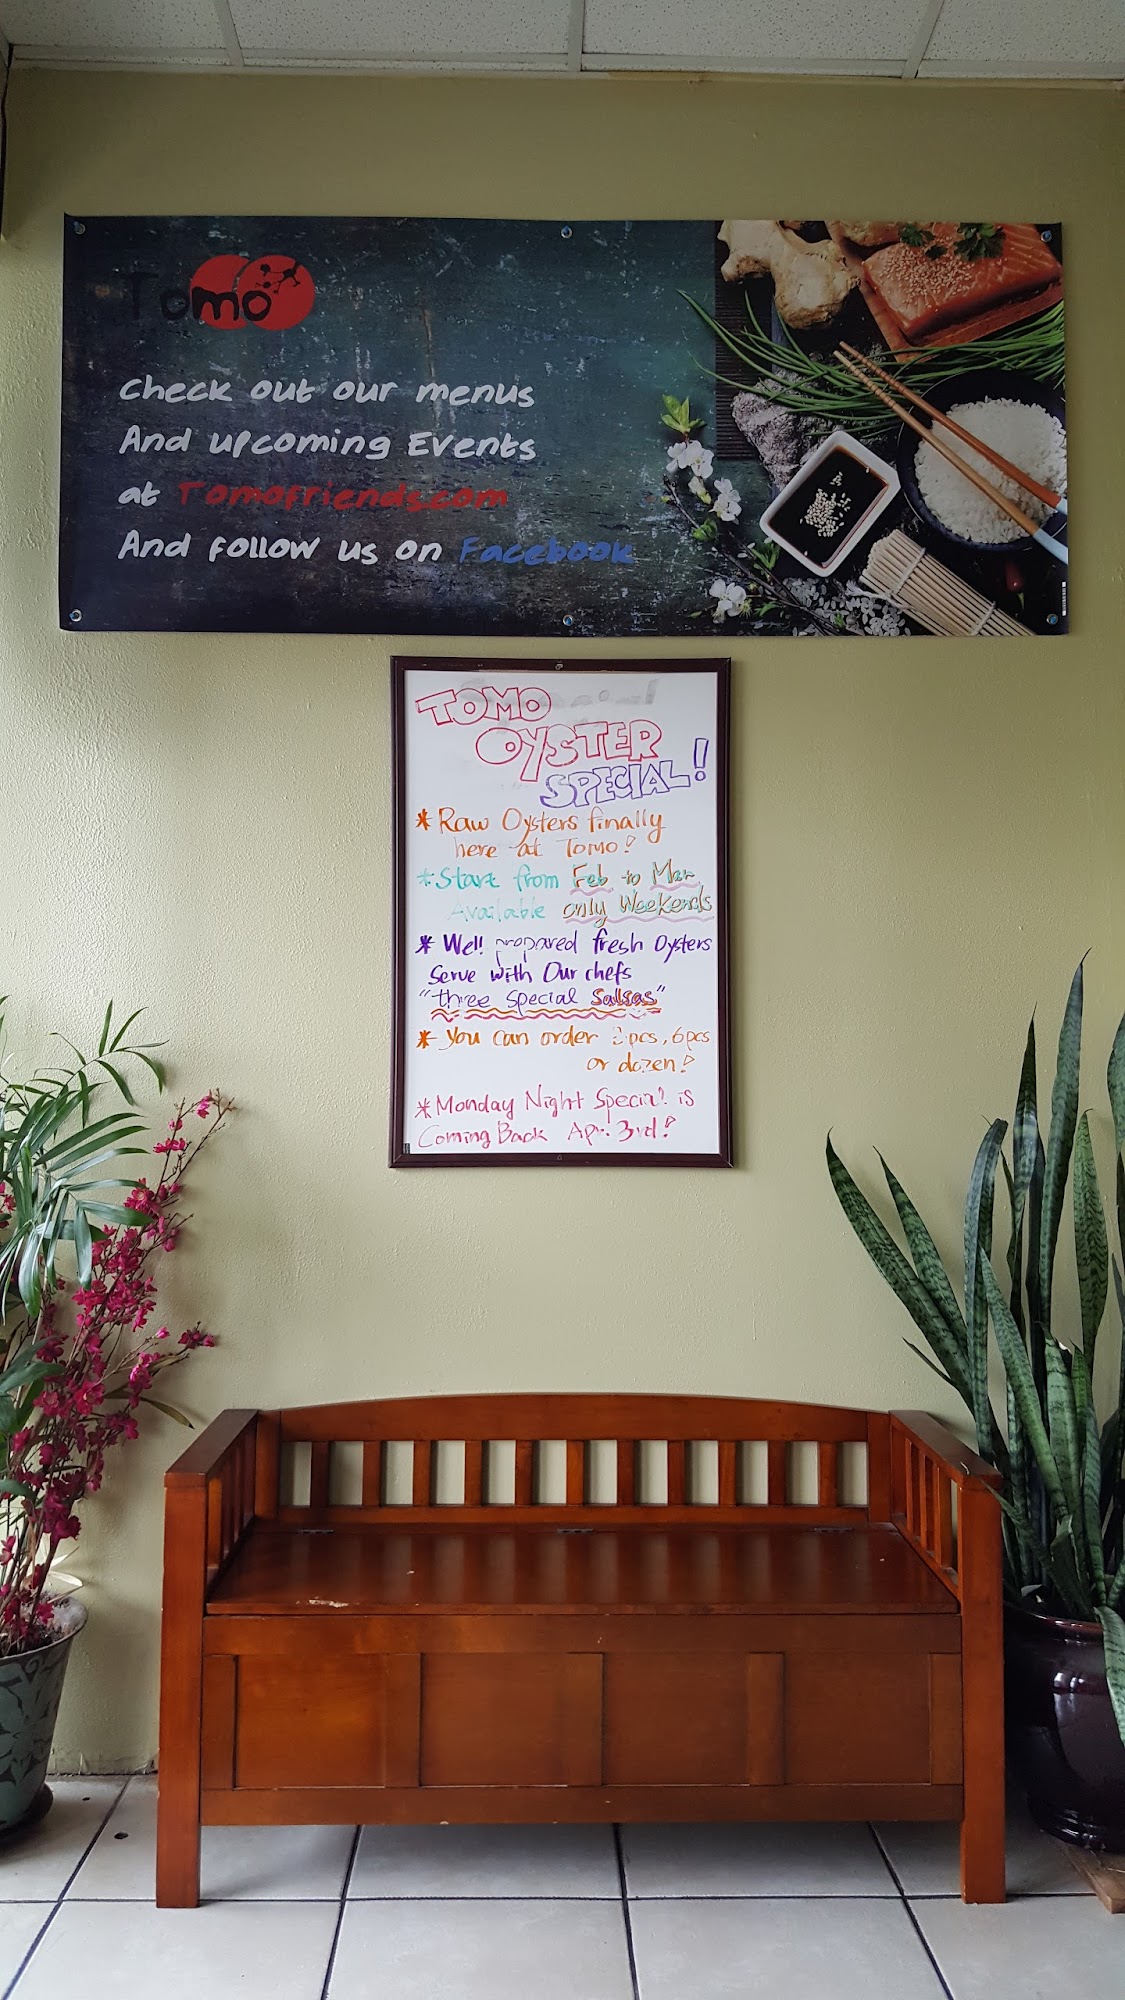 Tomo
Check out our menus
And upcoming Events
at Tomofriends.com
And follow us on Facebook
TOMO
OYSTER
SPECIAL!
* Raw Oysters finally
here at Tomo!
* Start from Feb to Mar
Available only Weekends
* Well prepared fresh Oysters
Serve with Our chefs
"three special Salsas"
* You can order pcs, 6pcs
or dozen!
* Monday Night Special is
Coming Back Apr. 3rd!